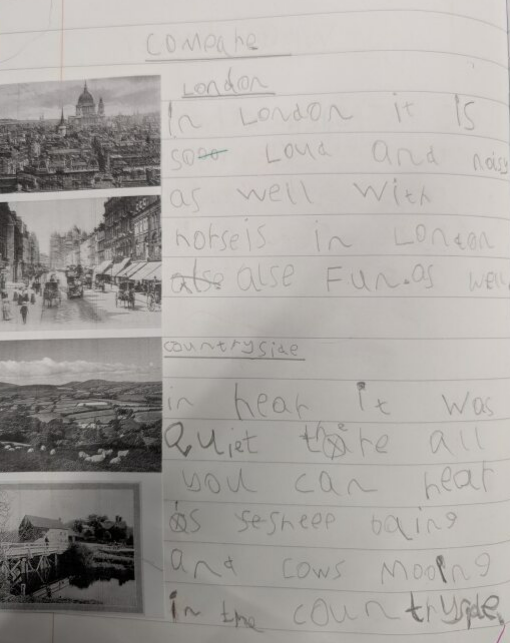 compare
London
in London it is
so Loud and noisy
as well with
horseis in London
alse Fun.as well
countryside
in hear it was
Quiet there all
you can hear
is sesheep baing
and cows mooing
in the countryside.